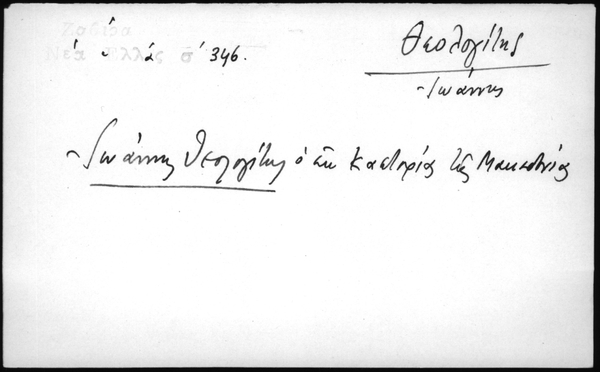 Ζαβίρα
Νέα Ἑλλάς σ' 346.
Θεολογίτης
Ἰωάννης
Ἰωάννης Θεολογίτης ὁ ἐκ Καστορίας τῆς Μακεδονίας